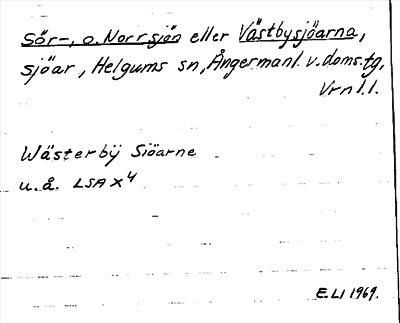 Sör-, o. Norrsjön eller Västbysjöarna,
sjöar, Helgums sn, Ångermanl. v. doms. tg,
Vrn l.l.
Wästerbÿ Siöarne
u.å. LSA X4
E.LI 1969.